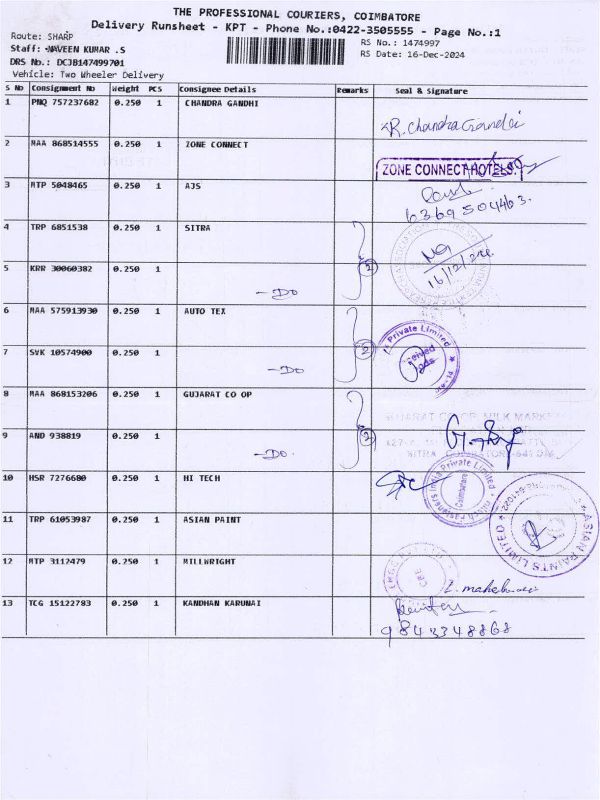 THE PROFESSIONAL COURIERS, COIMBATORE
Delivery Runsheet - KPT - Phone No.:0422-3505555 - Page No.:1
Route: SHARP
RS No.: 1474997
Staff: -NAVEEN KUMAR .S
RS Date: 16-Dec-2024
DRS No.: DCJB147499701
Vehicle: Two Wheeler Delivery
S No Consignment No Weight PCS Consignee Details Remarks Seal & Signature
1 PNQ 757237682 0.250 1 CHANDRA GANDHI
R. Chandra Gandhi
2 MAA 868514555 0.250 1 ZONE CONNECT
ZONE CONNECT HOTELS.
3 MTP 5048465 0.250 1 AJS
6369504463.
4 TRP 6851538 0.250 1 SITRA
16/12/24
5 KRR 30060382 0.250 1 - Do 2
6 MAA 575913930 0.250 1 AUTO TEX
Private Limited
7 SVK 10574900 0.250 1 - Do 2
8 MAA 868153206 0.250 1 GUJARAT CO OP
9 AND 938819 0.250 1 - Do. 2
10 HSR 7276680 0.250 1 HI TECH
India Private Limited
Coimbatore
11 TRP 61053987 0.250 1 ASIAN PAINT
ASIAN PAINTS LIMITED
12 MTP 3112479 0.250 1 MILLWRIGHT
CBE
13 TCG 15122783 0.250 1 KANDHAN KARUNAI
9843348868